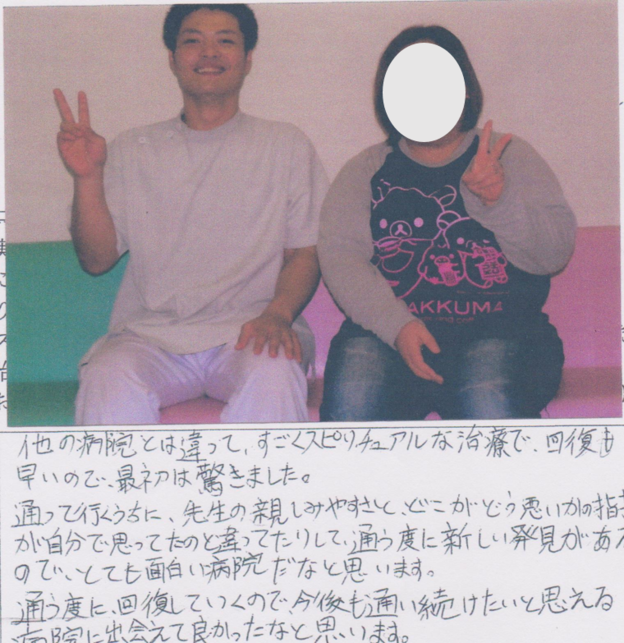 AKKUMA
他の病院とは違って、すごくスピリチュアルな治療で、回復も
早いので、最初は驚きました。
通って行くうちに、先生の親しみやすさと、どこがどう悪いかの指
が自分で思ってたのと違ってたりして、通う度に新しい発見がある
ので、とても面白い病院だなと思います。
通う度に、回復していくので、今後も通い続けたいと思える
病院に出会えて良かったなと思います。